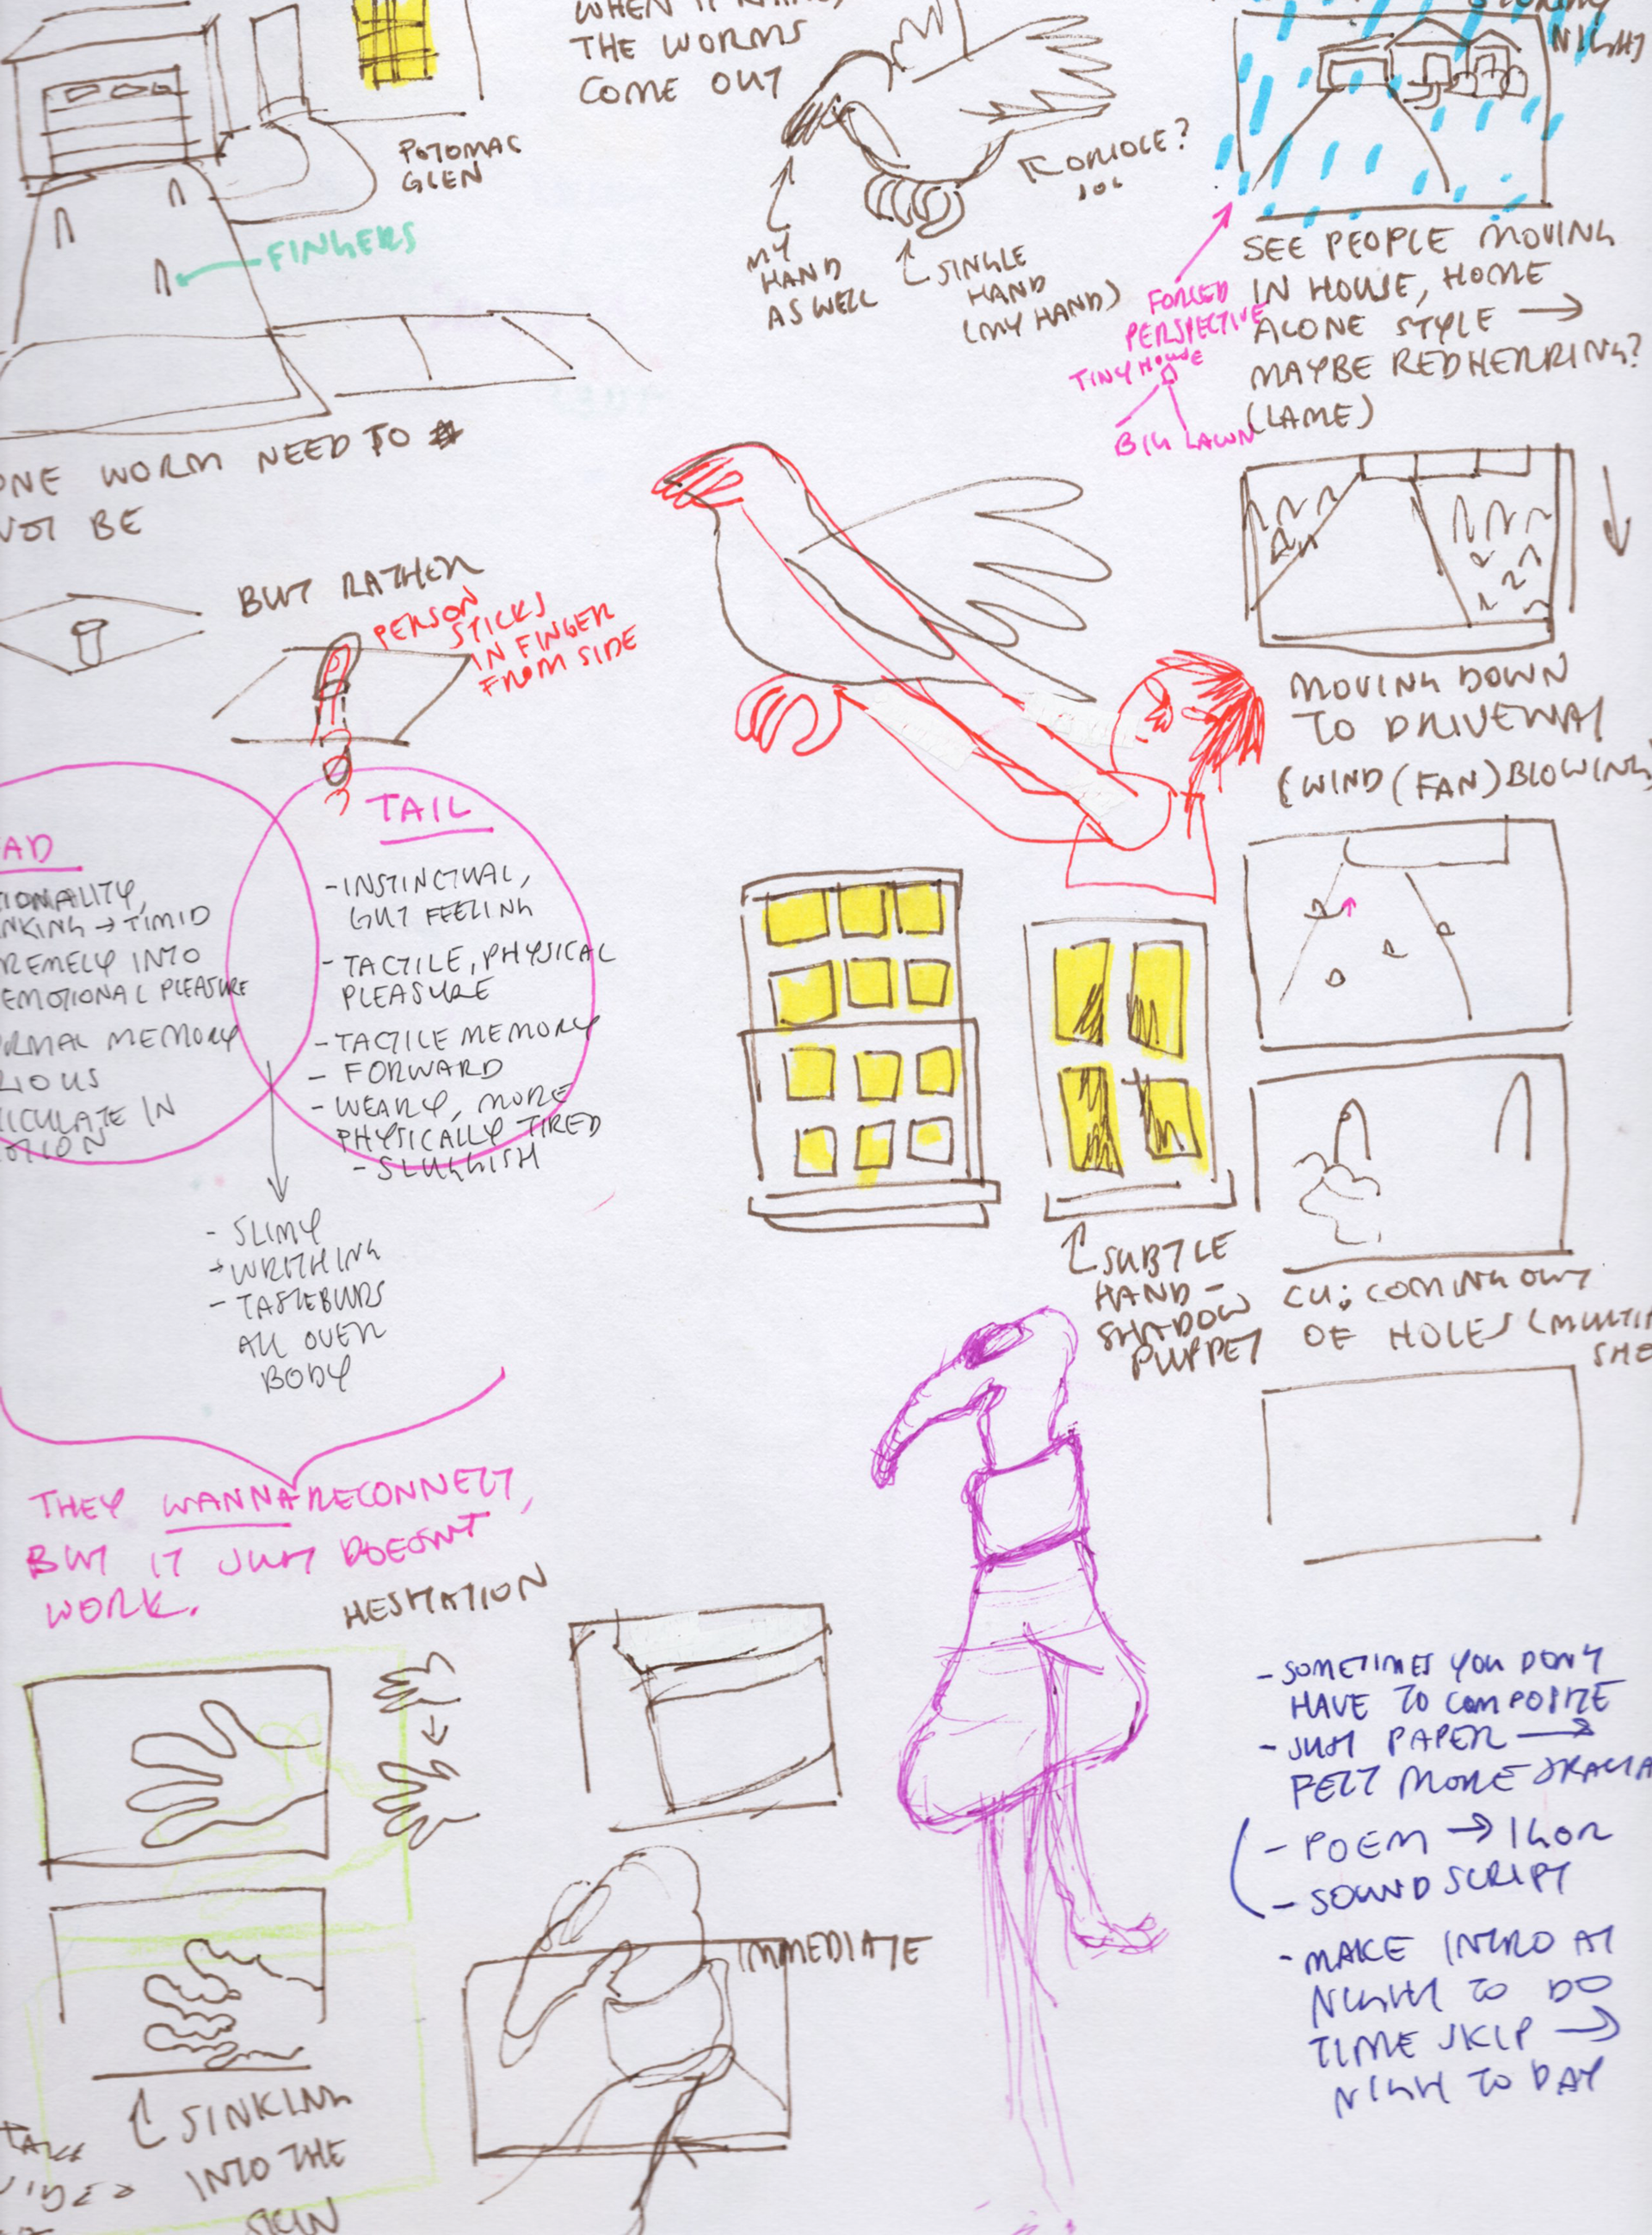 THE WORMS
COME OUT
NIGHT
POTOMAC
GLEN
FINGERS
MY
HAND
AS WELL
SINGLE
HAND
(MY HAND)
ORIOLE?
FORCED
PERSPECTIVE
TINY HOUSE
BIG LAWN
SEE PEOPLE MOVING
IN HOUSE, HOME
ALONE STYLE →
MAYBE RED HERRING?
(LAME)
ONE WORM NEED TO
NOT BE
BUT RATHER
PERSON
STICKS
IN FINGER
FROM SIDE
MOVING DOWN
TO DRIVEWAY
(WIND (FAN) BLOWING)
TIMID
INTO
EMOTIONAL PLEASURE
MEMORY
IN
TAIL
- INSTINCTUAL,
GUT FEELING
- TACTILE, PHYSICAL
PLEASURE
- TACTILE MEMORY
- FORWARD
- WEARY, MORE
PHYSICALLY TIRED
- SLUGGISH
- SLIMY
- WRITHING
- TASTEBUDS
ALL OVER
BODY
THEY WANNA RECONNECT,
BUT IT JUST DOESNT
WORK.
SUBTLE
HAND-
SHADOW
PUPPET
CU: COMING OUT
OF HOLES
HESITATION
IMMEDIATE
SINKING
INTO THE
SKIN
- SOMETIMES YOU DONT
HAVE TO COMPOSITE
- JUST PAPER →
FELT MORE
- POEM → IGOR
- SOUND SCRIPT
- MAKE INTRO AT
NIGHT TO DO
TIME SKIP →
NIGHT TO DAY